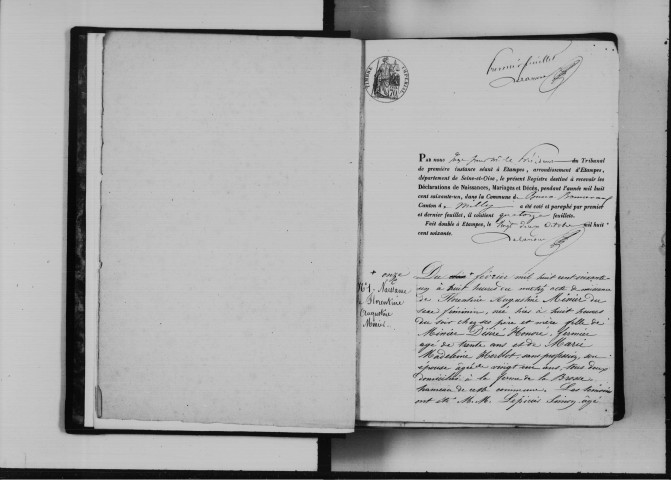 premier feuillet
Par nous Juge pour M. le Président du Tribunal
de première instance séant à Étampes, arrondissement d'Étampes,
département de Seine-et-Oise, le présent Registre destiné à recevoir les
Déclarations de Naissances, Mariages et Décès, pendant l'année mil huit
cent soixante-un, dans la Commune d
Canton d Milly a été coté et paraphé par premier
et dernier feuillet, il contient quatorze feuillets.
Fait double à Étampes, le vingt deux Octobre mil huit
cent soixante.
+ onze
N° 1. Naissance
de Florentine
Augustine
Minier.
Du + février mil huit cent soixante
un à huit heures du matin, acte de naissance
de Florentine Augustine Minier du
sexe féminin, née hier à huit heures
du soir chez ses père et mère fille de
Minier Désiré Honoré, fermier
agé de trente ans et de Marie
Madeleine Herblot sans profession, son
épouse âgée de vingt un ans, tous deux
domiciliés à la ferme de la Brosse
hameau de cette commune. Les témoins
ont été M.M. Simon, agé